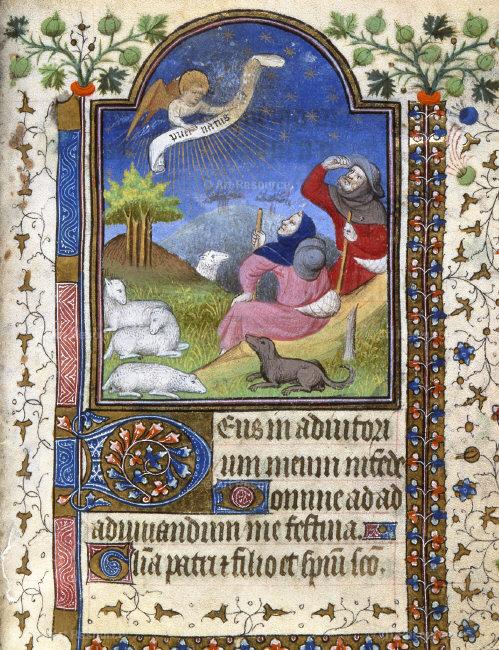 puer natus
© Art Resource
Deus in adiutori
um meum intēde
Domine ad ad
adiuuandum me festina.
Gl̄ia patri ⁊ filio et spirii sc̄o.